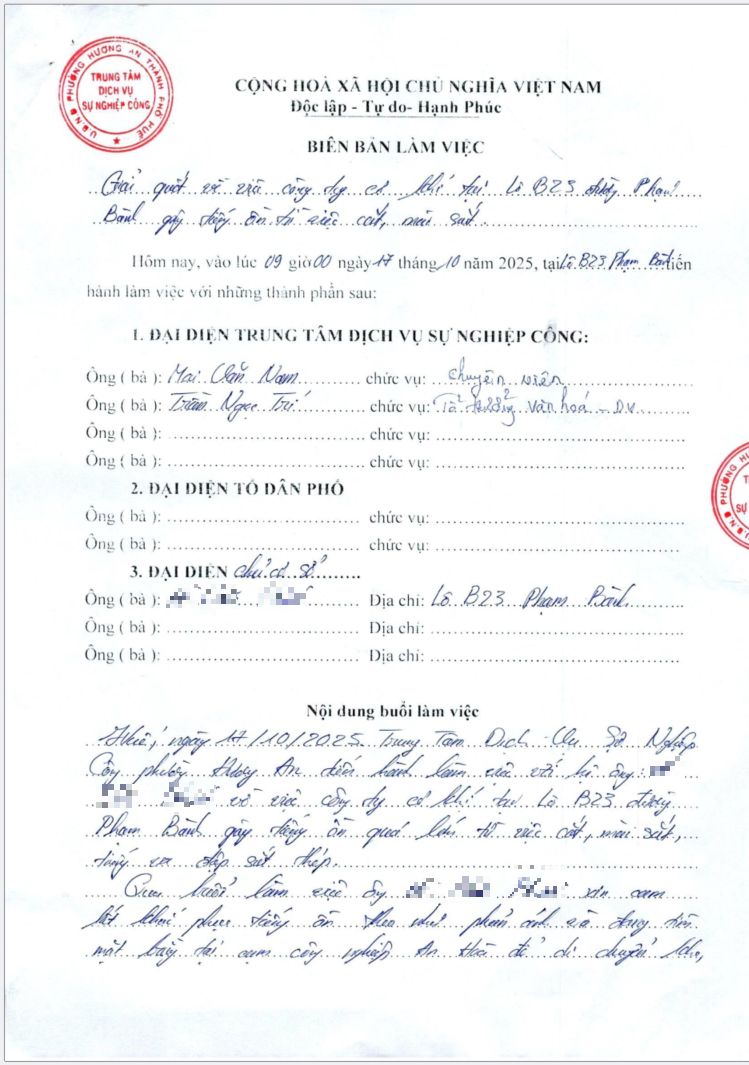 U.B.N.D PHƯỜNG HƯƠNG AN THÀNH PHỐ HUẾ
TRUNG TÂM
DỊCH VỤ
SỰ NGHIỆP CÔNG
CỘNG HOÀ XÃ HỘI CHỦ NGHĨA VIỆT NAM
Độc lập - Tự do- Hạnh Phúc
BIÊN BẢN LÀM VIỆC
Giải quết về việc công ty cơ khí tại Lô B23 đường Phạm
Bành gây tiếng ồn từ việc cắt, mài sắt.
Hôm nay, vào lúc 09 giờ 00 ngày 17 tháng 10 năm 2025, tại Lô B23 Phạm Bành tiến
hành làm việc với những thành phần sau:
1. ĐẠI DIỆN TRUNG TÂM DỊCH VỤ SỰ NGHIỆP CÔNG:
Ông ( bà ): Mai Văn Nam chức vụ: chuyên viên
Ông ( bà ): Trần Ngọc Trí chức vụ: Tổ trưởng Văn hoá - DV
Ông ( bà ): chức vụ:
Ông ( bà ): chức vụ:
2. ĐẠI DIỆN TỔ DÂN PHỐ
Ông ( bà ): chức vụ:
Ông ( bà ): chức vụ:
3. ĐẠI DIỆN chủ cơ sở
Ông ( bà ): Địa chỉ: Lô B23 Phạm Bành
Ông ( bà ): Địa chỉ:
Ông ( bà ): Địa chỉ:
Nội dung buổi làm việc
Huế, ngày 17/10/2025 Trung Tâm Dịch Vụ Sự Nghiệp
Công phường Hương An tiến hành làm việc với hộ ông:
về việc công ty cơ khí tại Lô B23 đường
Phạm Bành gây tiếng ồn quá lớn từ việc cắt, mài sắt,
tiếng va đập sắt thép.
Qua buổi làm việc ông xin cam
kết khắc phục tiếng ồn theo như phản ánh và đang tìm
mặt bằng tại cụm công nghiệp An Hoà để di chuyển kho,